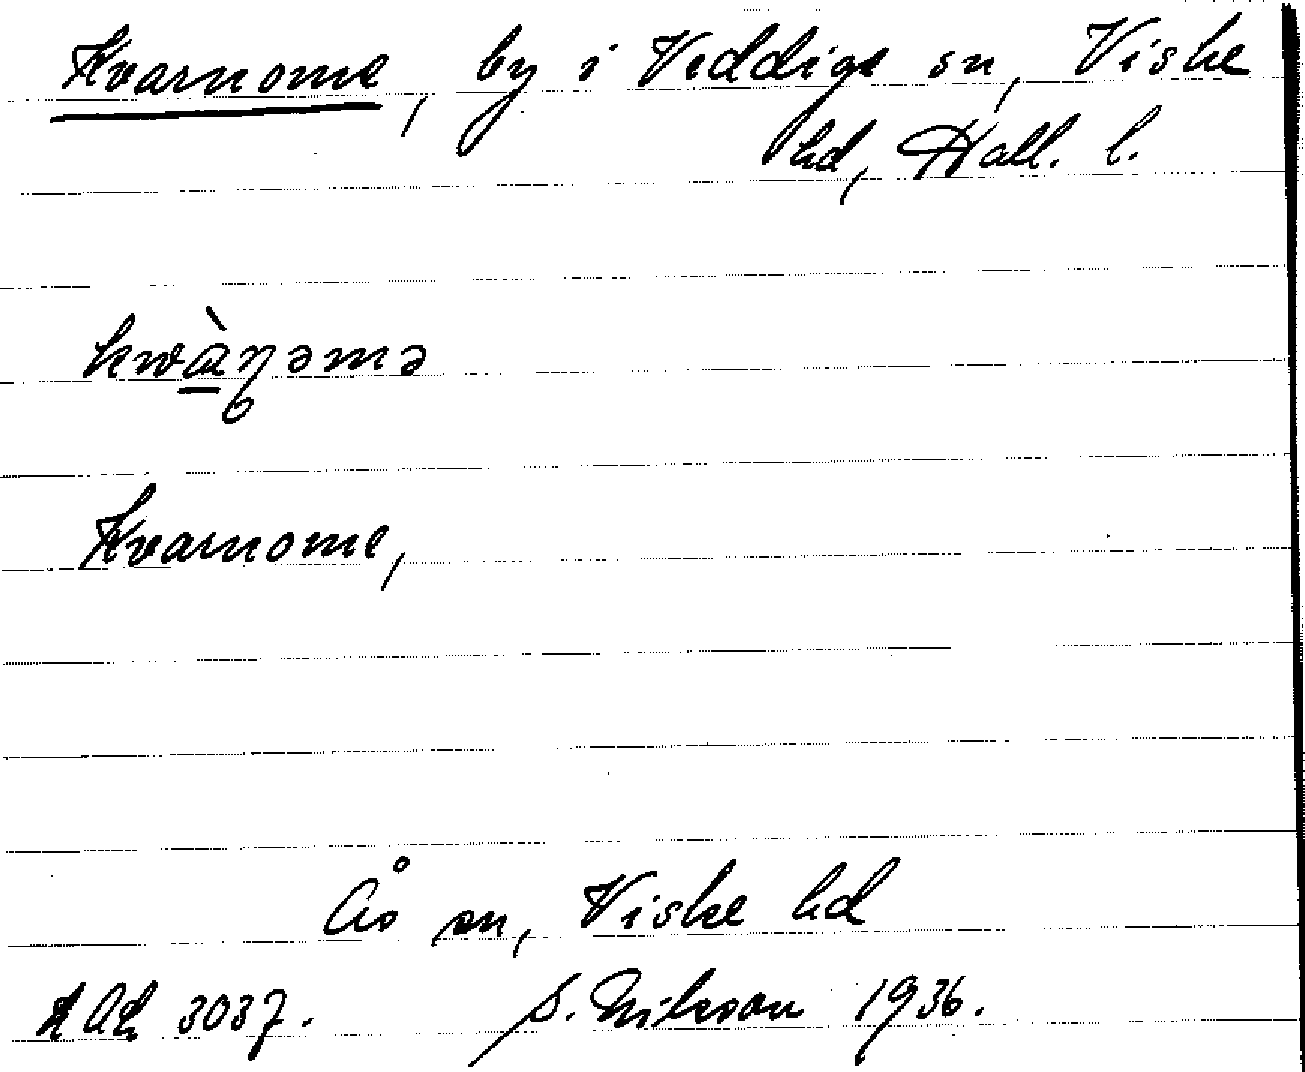 Kvarnome, by i Veddige sn, Viske
hd, Hall. l.
kwàꞃəmə
Kvarnome,
Ås sn, Viske hd
LAL 3037. S. Nilsson 1936.